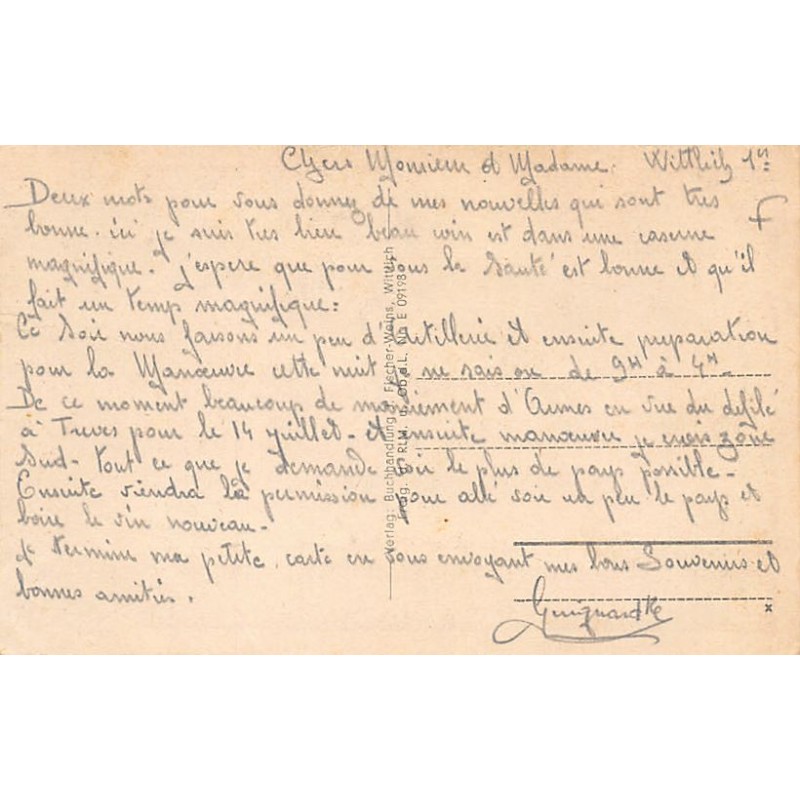 Chers Monsieur et Madame. Wittlich 1er
Deux mots pour vous donner de mes nouvelles qui sont tres
bonne. ici je suis tres bien beau coin est dans une caserne
magnifique. j'espere que pour vous la Santé est bonne et qu'il
fait un temp magnifique:
Ce Soir nous faisons un peu d'artillerie et ensuite preparation
pour la Manœuvre cette nuit je ne sais ou de 9H à 4H-
De ce moment beaucoup de maniement d'Armes en vue du defilé
à Treves pour le 14 juillet- et ensuite manœuvre je crois zône
Sud- tout ce que je demande voir le plus de pays possible-
Ensuite viendra la permission pour allé voir un peu le pays et
boire le vin nouveau-
Je termine ma petite carte en vous envoyant mes bons Souvenirs et
bonnes amitiés.
Verlag: Buchhandlung Fischer-Weins, Wittlich
RLM. Obd.L. No E 09198
x